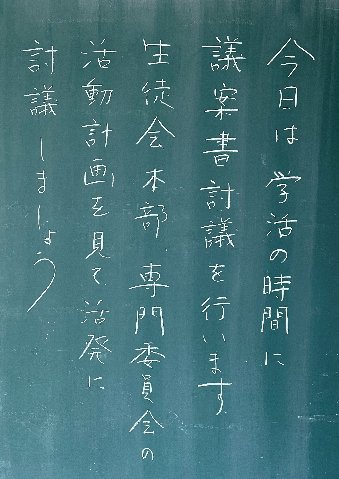 今日は学活の時間に
議案書討議を行います
生徒会本部、専門委員会の
活動計画を見て活発に
討議しましょう